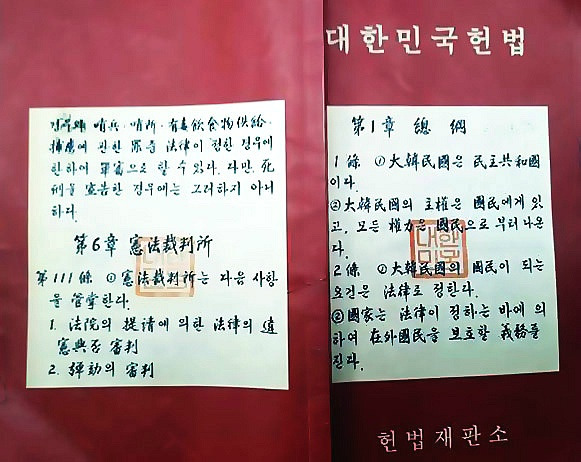 대한민국헌법
경우와 哨兵·哨所·有毒飮食物供給·
捕虜에 관한 罪중 法律이 정한 경우에
한하여 單審으로 할 수 있다. 다만, 死
刑을 宣告한 경우에는 그러하지 아니
하다.
第6章 憲法裁判所
第111條 ①憲法裁判所는 다음 사항
을 管掌한다.
1. 法院의 提請에 의한 法律의 違
憲與否 審判
2. 彈劾의 審判
第1章 總綱
1條 ①大韓民國은 民主共和國
이다.
②大韓民國의 主權은 國民에게 있
고, 모든 權力은 國民으로부터 나온
다.
2條 ①大韓民國의 國民이 되는
요건은 法律로 정한다.
②國家는 法律이 정하는 바에 의
하여 在外國民을 보호할 義務를
진다.
대한
민국
헌법재판소